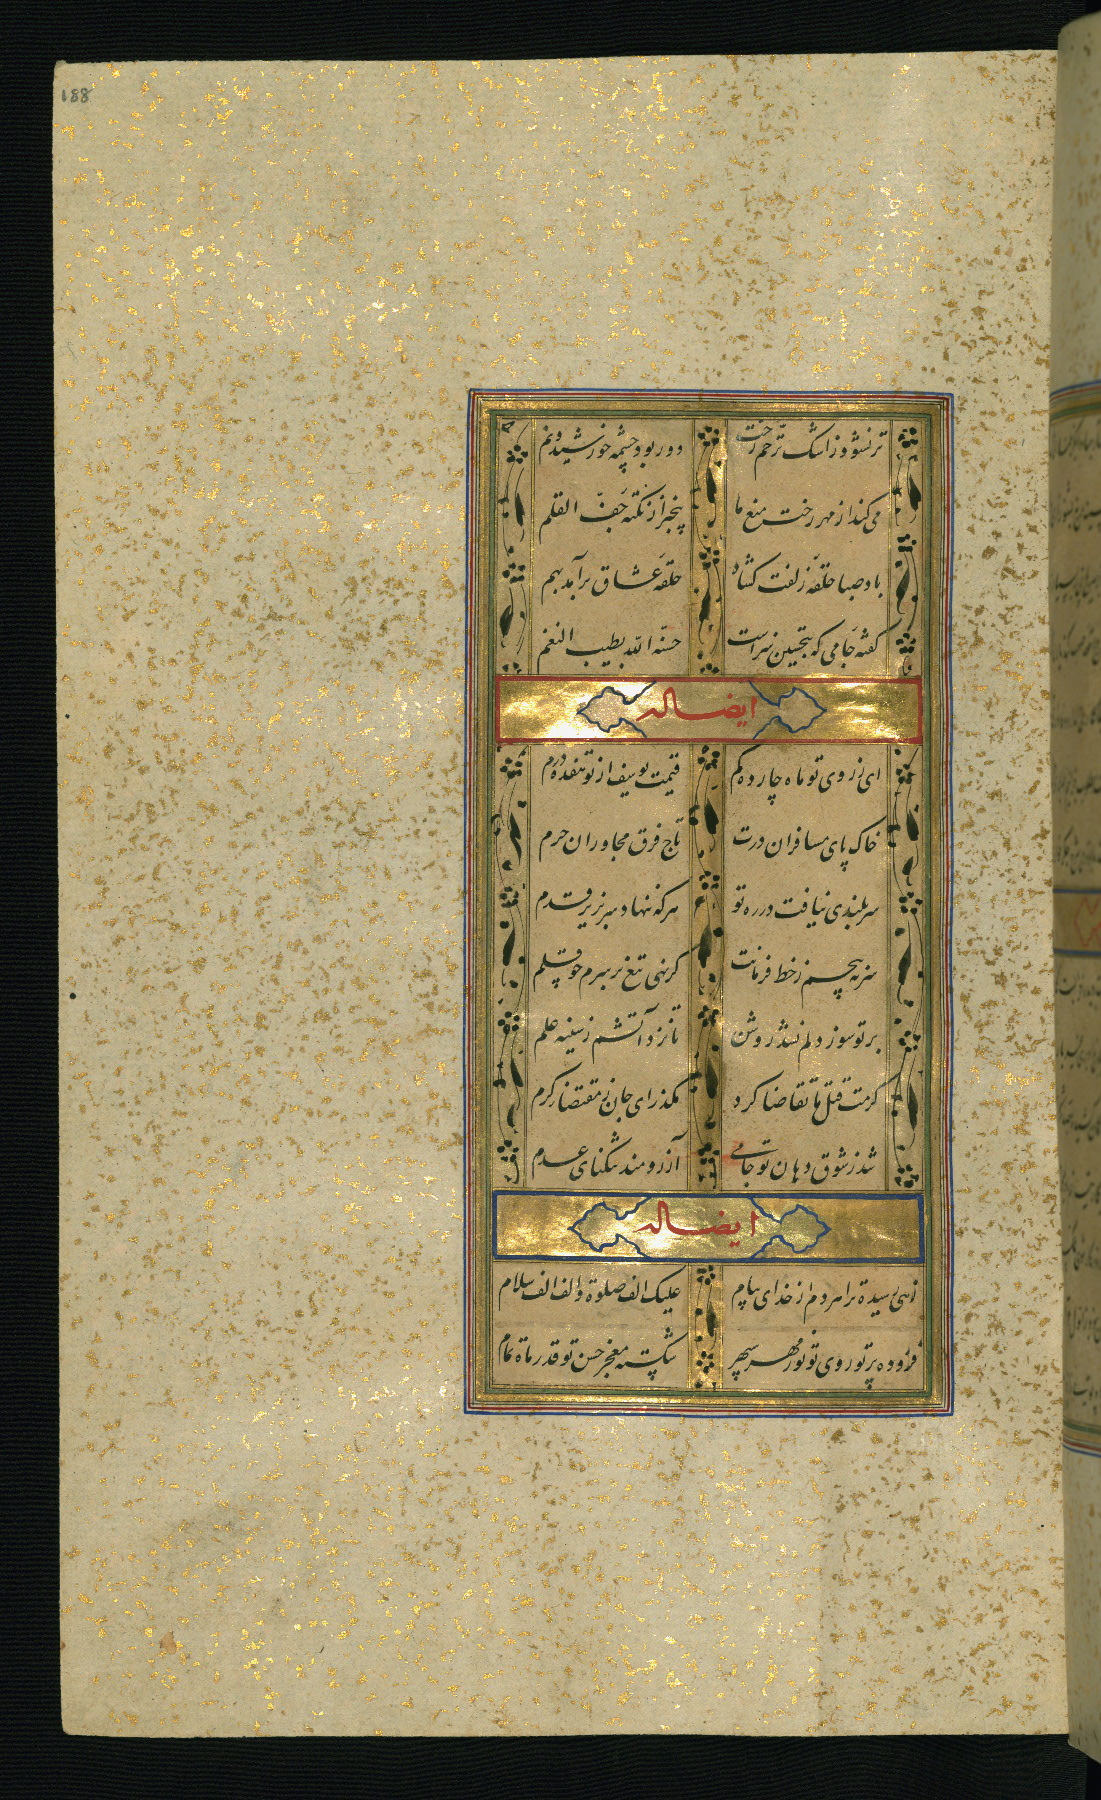 188
تر نشود ز اشک ترحم رخت دور بود چشمه خورشید و نم
می کند از مهر رخت منع ما بیخبر از نکته جف القلم
باد صبا حلقه زلفت کشاد حلقه عشاق برآمد بهم
گفته جامی که بتحسین سزاست حسنه الله بطیب النغم
ایضا له
ای ز روی تو ماه چارده کم قیمت یوسف از تو هفده درم
خاک پای مسافران درت تاج فرق مجاوران حرم
سربلندی نیافت در ره تو هر که ننهاد سر بزیر قدم
سر نپیچم ز خط فرمانت گر نهی تیغ بر سرم چو قلم
بر تو سوز دلم نشد روشن تا نزد آتشم ز سینه علم
کرمت قتل ما تقاضا کرد مگذر ای جان ز مقتضای کرم
شد ز شوق دهان تو جامی آرزومند تنگنای عدم
ایضا له
زهی رسیده ترا هر دم از خدای پیام علیک الف صلوة و الف الف سلام
فزوده پرتو روی تو نور مهر سپهر شکسته معجز حسن تو قدر ماه تمام